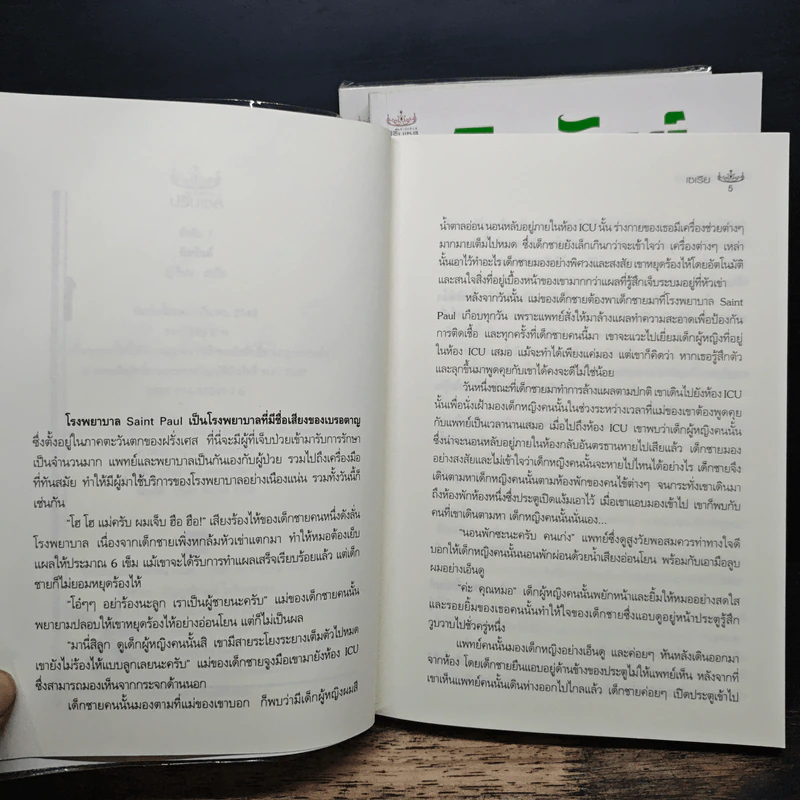 โรงพยาบาล Saint Paul เป็นโรงพยาบาลที่มีชื่อเสียงของเบรอตาญ
ซึ่งตั้งอยู่ในภาคตะวันตกของฝรั่งเศส ที่นี่จะมีผู้ที่เจ็บป่วยเข้ามารับการรักษา
เป็นจำนวนมาก แพทย์และพยาบาลเป็นกันเองกับผู้ป่วย รวมไปถึงเครื่องมือ
ที่ทันสมัย ทำให้มีผู้มาใช้บริการของโรงพยาบาลอย่างเนืองแน่น รวมทั้งวันนี้ก็
เช่นกัน
“โฮ โฮ แม่ครับ ผมเจ็บ ฮือ ฮือ!” เสียงร้องไห้ของเด็กชายคนหนึ่งดังลั่น
โรงพยาบาล เนื่องจากเด็กชายเพิ่งหกล้มหัวเข่าแตกมา ทำให้หมอต้องเย็บ
แผลให้ประมาณ 6 เข็ม แม้เขาจะได้รับการทำแผลเสร็จเรียบร้อยแล้ว แต่เด็ก
ชายก็ไม่ยอมหยุดร้องไห้
“โอ๋ๆๆ อย่าร้องนะลูก เราเป็นผู้ชายนะครับ” แม่ของเด็กชายคนนั้น
พยายามปลอบให้เขาหยุดร้องไห้อย่างอ่อนโยน แต่ก็ไม่เป็นผล
“มานี่สิลูก ดูเด็กผู้หญิงคนนั้นสิ เขามีสายระโยงระยางเต็มตัวไปหมด
เขายังไม่ร้องไห้แบบลูกเลยนะครับ” แม่ของเด็กชายจูงมือเขามายังห้อง ICU
ซึ่งสามารถมองเห็นจากกระจกด้านนอก
เด็กชายคนนั้นมองตามที่แม่ของเขาบอก ก็พบว่ามีเด็กผู้หญิงผมสี
เซเรีย
5
น้ำตาลอ่อน นอนหลับอยู่ภายในห้อง ICU นั้น ร่างกายของเธอมีเครื่องช่วยต่างๆ
มากมายเต็มไปหมด ซึ่งเด็กชายยังเล็กเกินกว่าจะเข้าใจว่า เครื่องต่างๆ เหล่า
นั้นเอาไว้ทำอะไร เด็กชายมองอย่างพิศวงและสงสัย เขาหยุดร้องไห้โดยอัตโนมัติ
และสนใจสิ่งที่อยู่เบื้องหน้าของเขามากกว่าแผลที่รู้สึกเจ็บระบมอยู่ที่หัวเข่า
หลังจากวันนั้น แม่ของเด็กชายต้องพาเด็กชายมาที่โรงพยาบาล Saint
Paul เกือบทุกวัน เพราะแพทย์สั่งให้มาล้างแผลทำความสะอาดเพื่อป้องกัน
การติดเชื้อ และทุกครั้งที่เด็กชายคนนี้มา เขาจะแวะไปเยี่ยมเด็กผู้หญิงที่อยู่
ในห้อง ICU เสมอ แม้จะทำได้เพียงแค่มอง แต่เขาก็คิดว่า หากเธอรู้สึกตัว
และลุกขึ้นมาพูดคุยกับเขาได้คงจะดีไม่ใช่น้อย
วันหนึ่งขณะที่เด็กชายมาทำการล้างแผลตามปกติ เขาเดินไปยังห้อง ICU
นั้นเพื่อนั่งเฝ้ามองเด็กหญิงคนนั้นในช่วงระหว่างเวลาที่แม่ของเขาต้องพูดคุย
กับแพทย์เป็นเวลานานเสมอ เมื่อไปถึงห้อง ICU เขาพบว่าเด็กผู้หญิงคนนั้น
ซึ่งน่าจะนอนหลับอยู่ภายในห้องกลับอันตรธานหายไปเสียแล้ว เด็กชายมอง
อย่างสงสัยและไม่เข้าใจว่าเด็กหญิงคนนั้นจะหายไปไหนได้อย่างไร เด็กชายจึง
เดินตามหาเด็กหญิงคนนั้นตามห้องพักของคนไข้ต่างๆ จนกระทั่งเขาเดินมา
ถึงห้องพักห้องหนึ่งซึ่งประตูเปิดแง้มเอาไว้ เมื่อเขาแอบมองเข้าไป เขาก็พบกับ
คนที่เขาเดินตามหา เด็กหญิงคนนั้นนั่นเอง...
“นอนพักซะนะครับ คนเก่ง” แพทย์ซึ่งดูสูงวัยพอสมควรท่าทางใจดี
บอกให้เด็กหญิงคนนั้นนอนพักผ่อนด้วยน้ำเสียงอ่อนโยน พร้อมกับเอามือลูบ
ผมอย่างเอ็นดู
“ค่ะ คุณหมอ” เด็กผู้หญิงคนนั้นพยักหน้าและยิ้มให้หมออย่างสดใส
และรอยยิ้มของเธอคนนั้นทำให้ใจของเด็กชายซึ่งแอบดูอยู่หน้าประตูรู้สึก
วูบวาบไปชั่วครู่หนึ่ง
แพทย์คนนั้นมองเด็กหญิงอย่างเอ็นดู และค่อยๆ หันหลังเดินออกมา
จากห้อง โดยเด็กชายยืนแอบอยู่ด้านข้างของประตูไม่ให้แพทย์เห็น หลังจากที่
เขาเห็นแพทย์คนนั้นเดินห่างออกไปไกลแล้ว เด็กชายค่อยๆ เปิดประตูเข้าไป